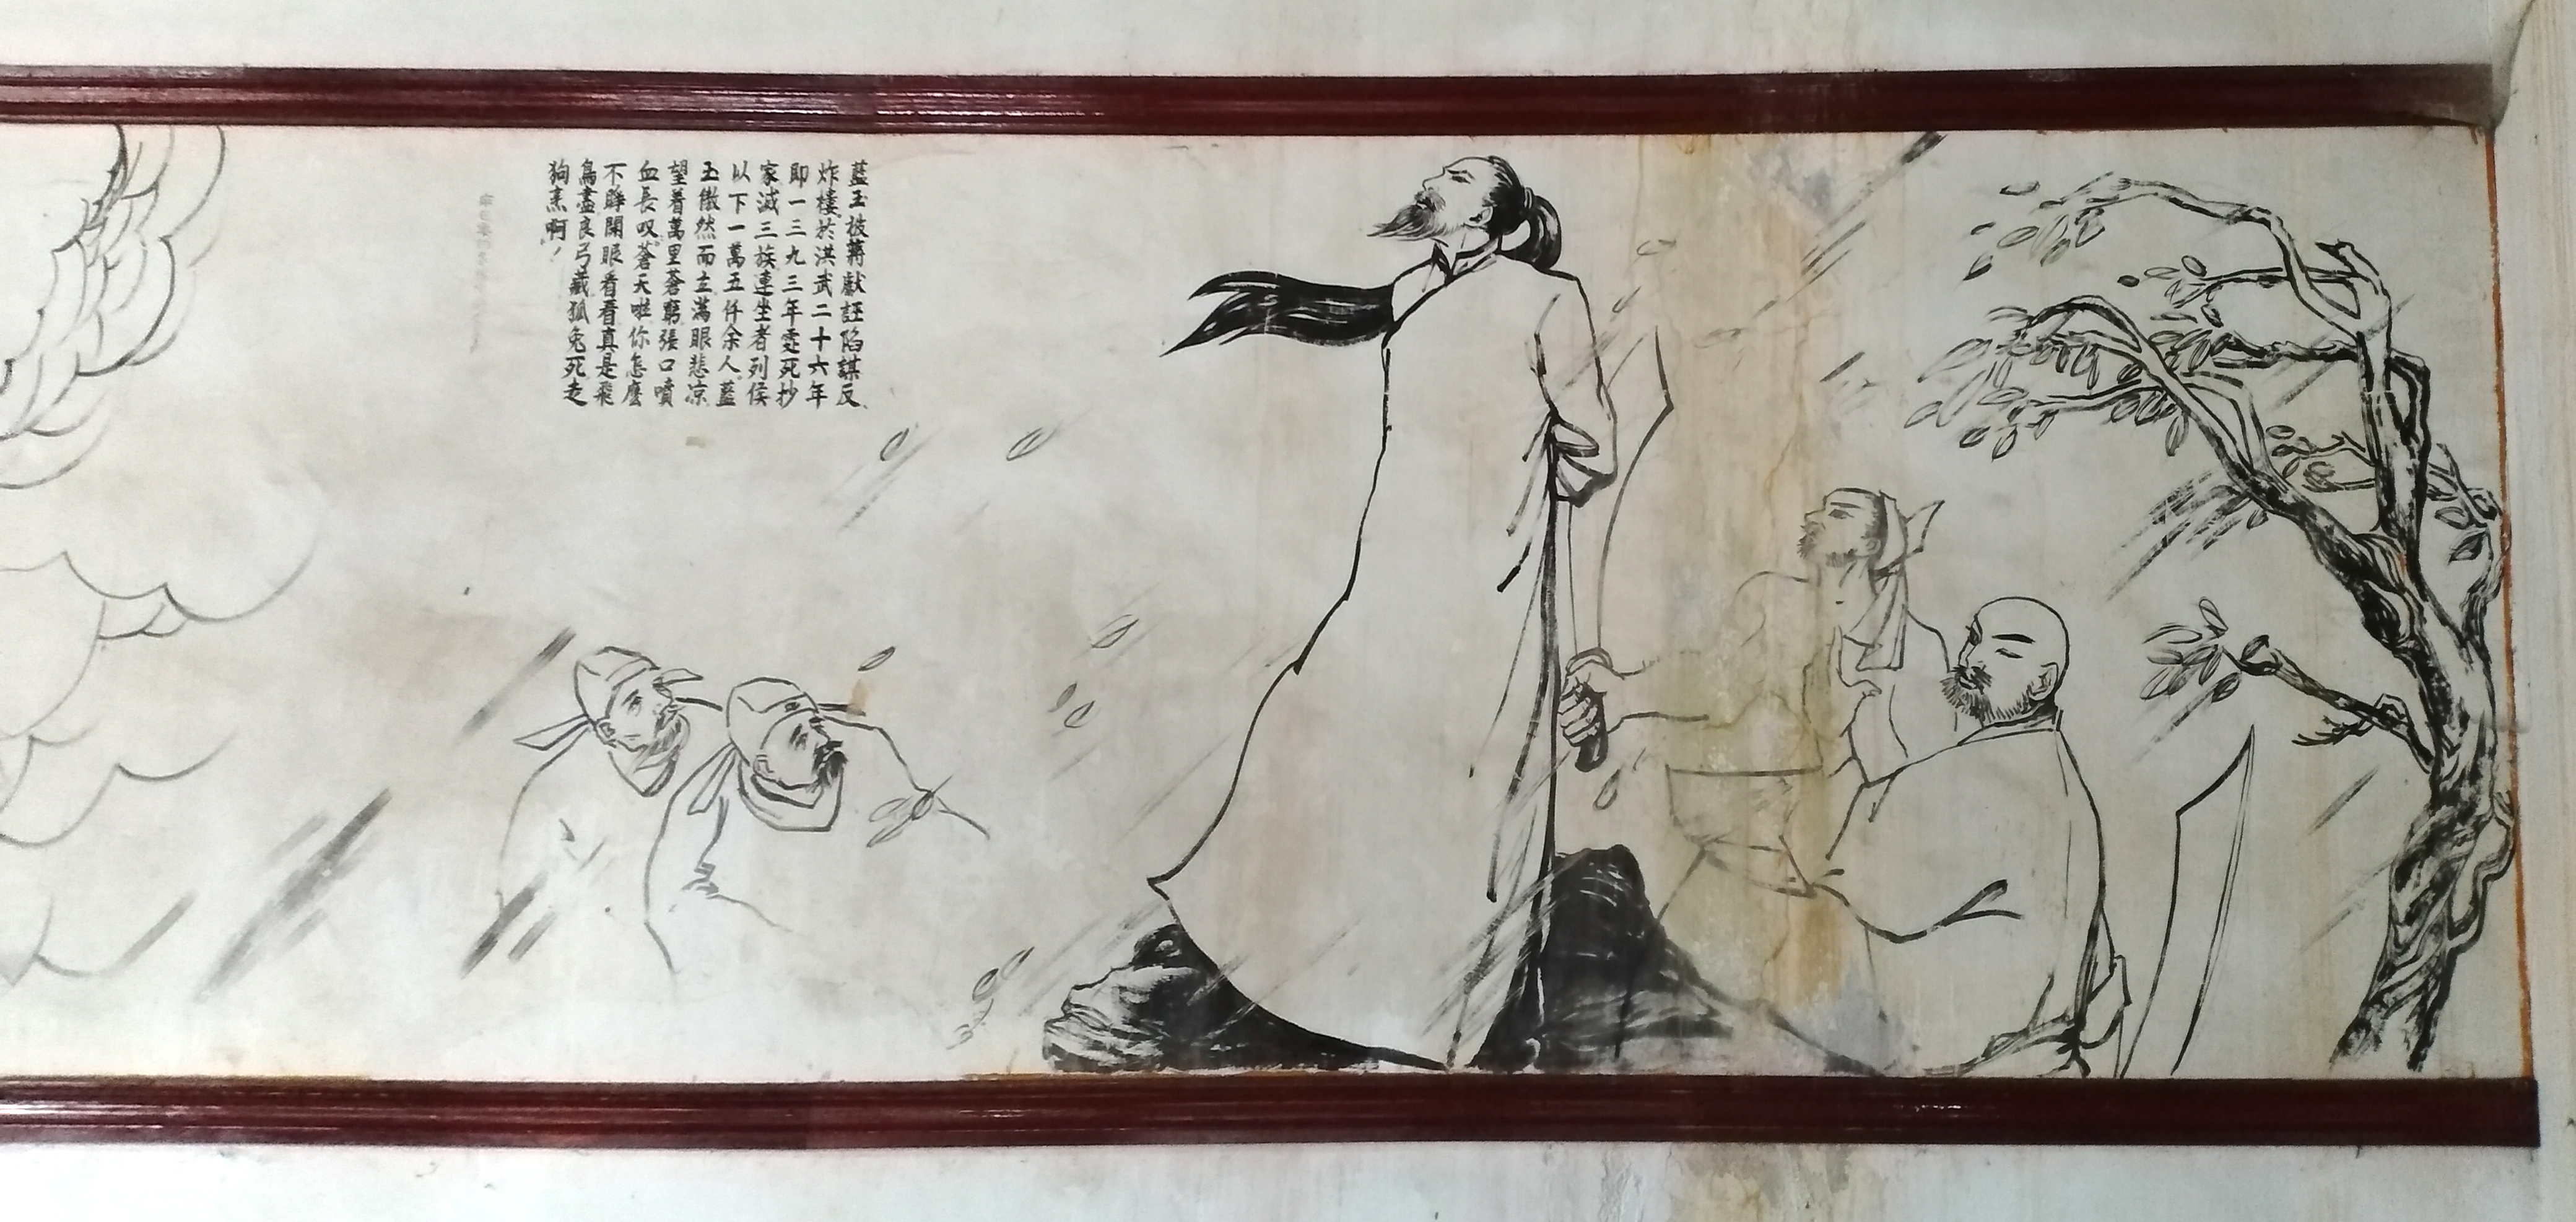 藍玉被蔣獻誣陷謀反、
炸樓於洪武二十六年
即一三九三年處死抄
家滅三族連坐者列侯
以下一萬五仟余人藍
玉傲然而立滿眼悲凉
望着萬里蒼窮張口噴
血長叹蒼天啦你怎麼
不睁開眼看看真是飛
鳥盡良弓藏狐兔死走
狗烹啊！